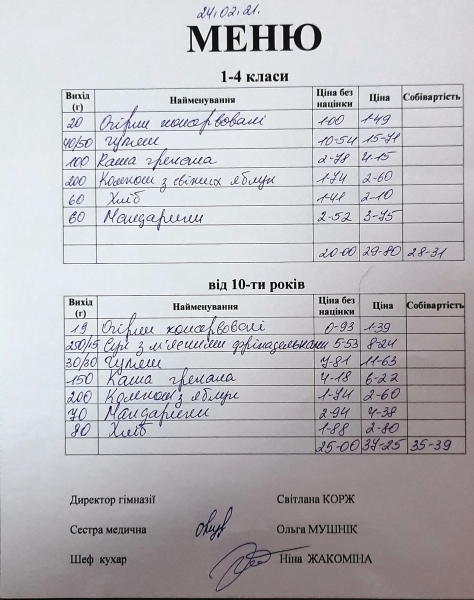 24.02.21.
МЕНЮ
1-4 класи
Вихід (г) Найменування Ціна без націнки Ціна Собівартість
20 Огірки консервовані 1-00 1-49
40/50 Гуляш 10-54 15-71
100 Каша гречана 2-78 4-15
200 Компот з свіжих яблук 1-74 2-60
60 Хліб 1-41 2-10
60 Мандарини 2-52 3-75
20-00 29-80 28-31
від 10-ти років
Вихід (г) Найменування Ціна без націнки Ціна Собівартість
19 Огірки консервовані 0-93 1-39
250/15 Суп з м'ясними фрікадельками 5-53 8-24
30/30 Гуляш 7-81 11-63
150 Каша гречана 4-18 6-22
200 Компот з яблук 1-74 2-60
70 Мандарини 2-94 4-38
80 Хліб 1-88 2-80
25-00 37-25 35-39
Директор гімназії Світлана КОРЖ
Сестра медична Ольга МУШНІК
Шеф кухар Ніна ЖАКОМІНА